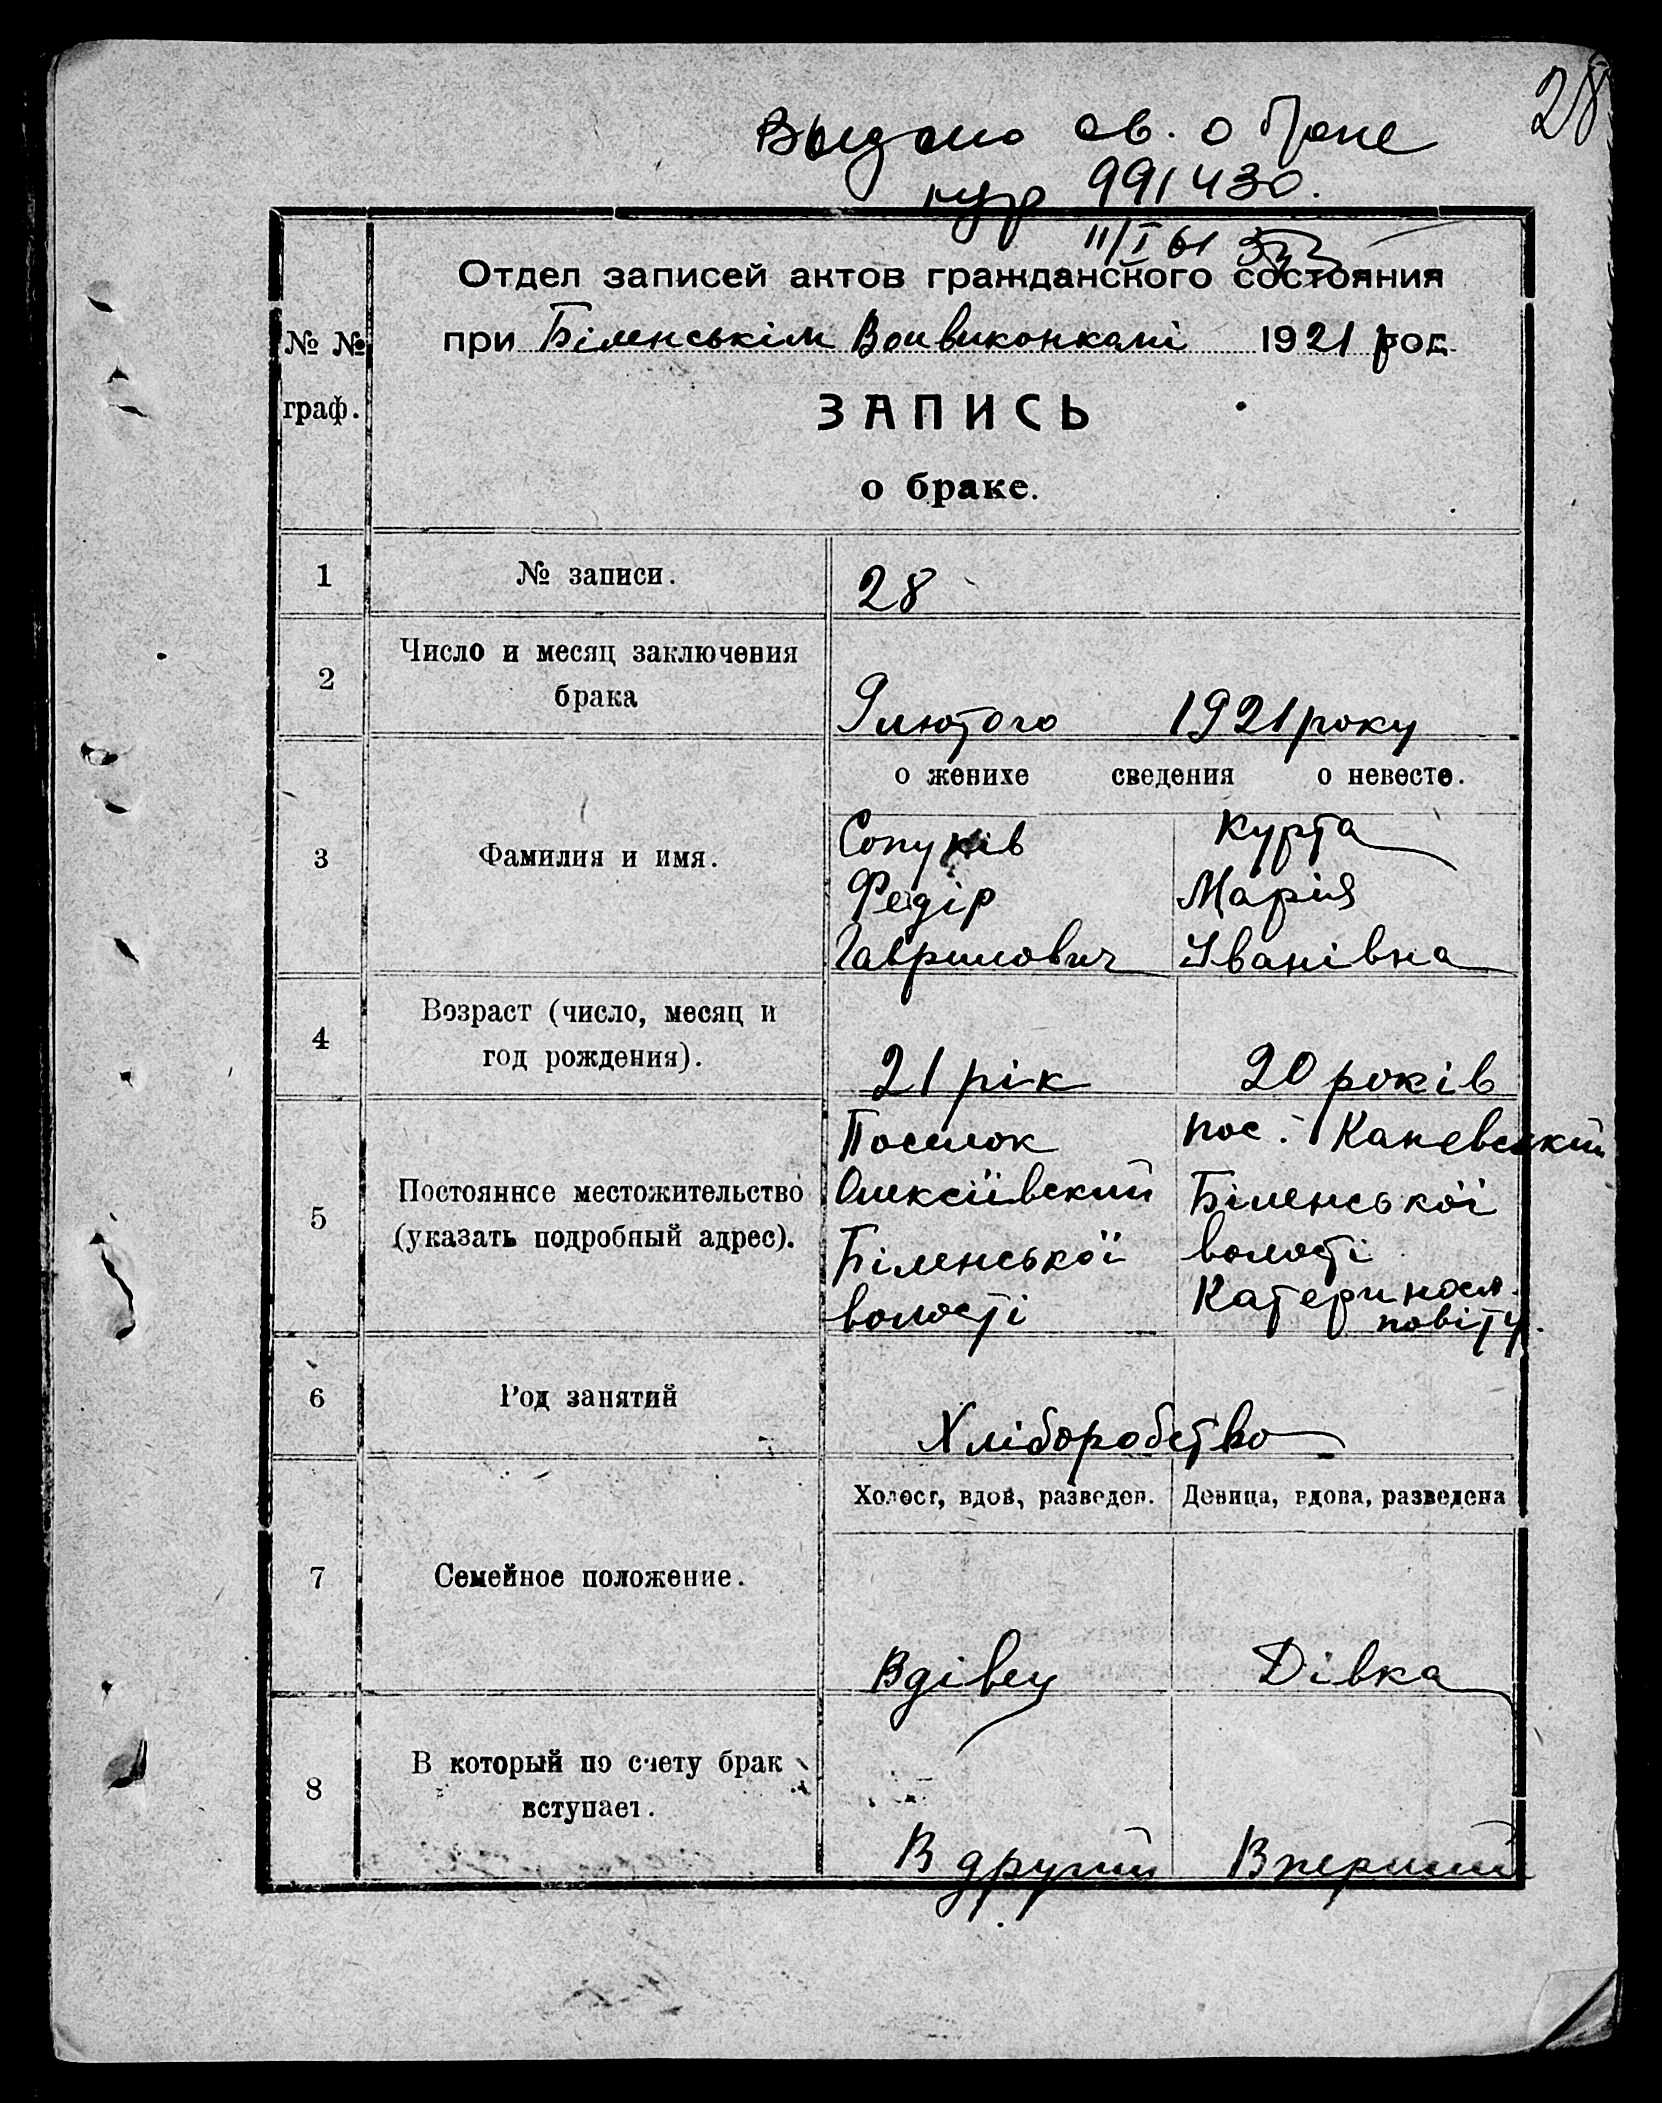 28
Выдано св. о браке
991430.
11/I 61
Отдел записей актов гражданского состояния
при Біленськім Волвиконкомі 1921 род
№ №
граф.
ЗАПИСЬ
о браке.
1 № записи. 28
2 Число и месяц заключения
брака
9 лютого 1921 року
о женихе сведения о невесте.
3 Фамилия и имя.
Курта
Федір Марія
Гаврилович Іванівна
4 Возраст (число, месяц и
год рождения).
21 рік 20 років
5 Постоянное местожительство
(указать подробный адрес).
Поселок пос. Каневський
Олексіївский Біленської
Біленської волості
волості Катериносл.
повіту.
6 Род занятий
Хліборобство
Холост, вдов, разведен. Девица, вдова, разведена
7 Семейное положение.
Вдівец Дівка
8 В который по счету брак
вступает.
В другий В перший